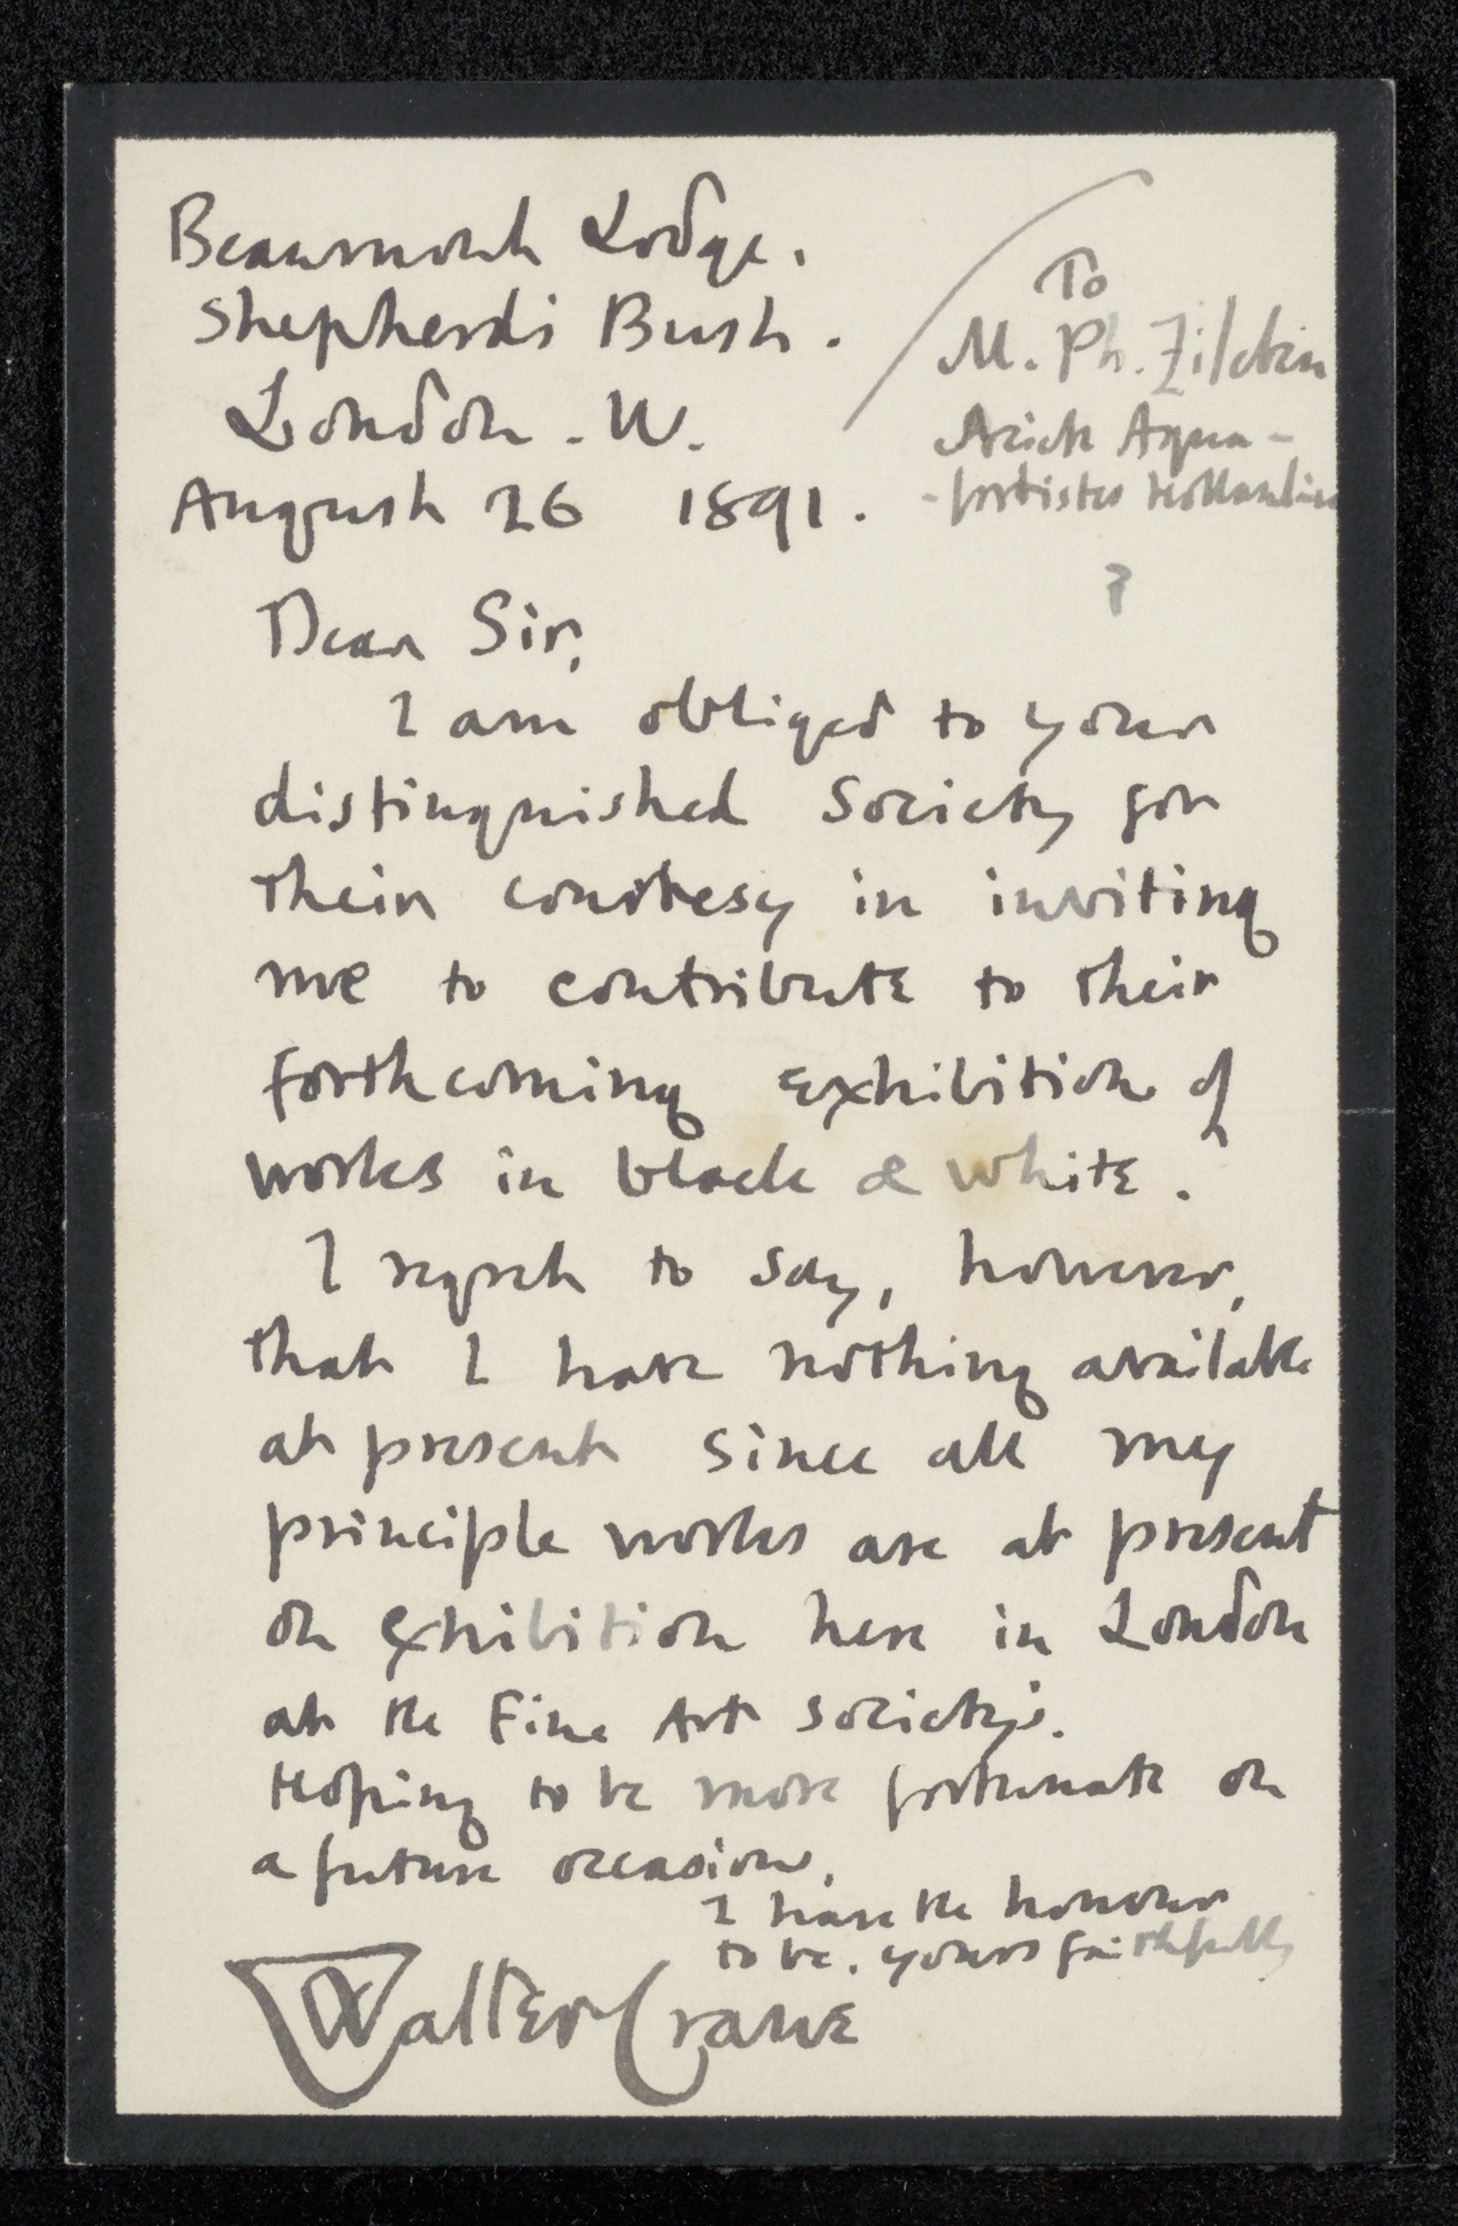 Beaumont Lodge.
Shepherds Bush.
London. W.
August 26 1891.
To
M. Ph. Zilcken
Aqua-
-fortistes Hollandais
?
Dear Sir,
I am obliged to your
distinguished Society for
their courtesy in inviting
me to contribute to their
forthcoming exhibition of
works in black & white.
I regret to say, however,
that I have nothing available
at present since all my
principle works are at present
on exhibition here in London
at the Fine Art Society's.
Hoping to be more fortunate on
a future occasion,
I have the honour
to be. yours faithfully
Walter Crane